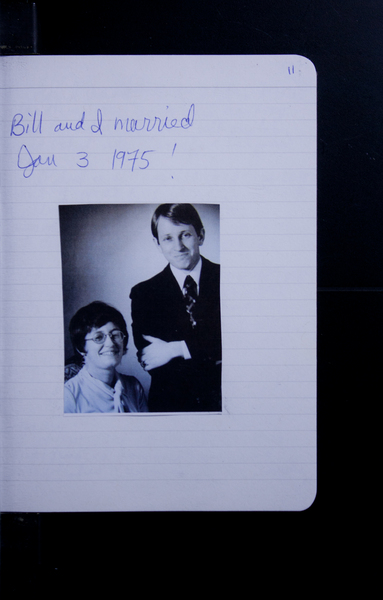 11.
Bill and I married
Jan 3 1975!